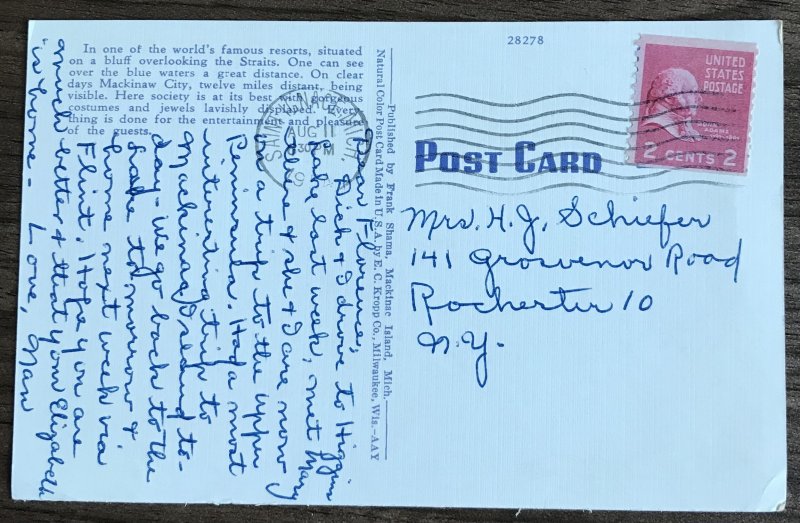 In one of the world's famous resorts, situated
on a bluff overlooking the Straits. One can see
over the blue waters a great distance. On clear
days Mackinaw City, twelve miles distant, being
visible. Here society is at its best with gorgeous
costumes and jewels lavishly displayed. Every-
thing is done for the entertainment and pleasure
of the guests.
Dear Florence,
Dick & I drove to Higgins
Lake last week, met Mary
there & she & I are now
on a trip to the upper
Peninsula. Had a most
interesting trip to
Mackinac Island to-
day - we go back to the
Lake tomorrow &
home next week via
Flint. Hope you are
much better & that your Elizabeth
is home. Love, Nan
Published by Frank Shama, Mackinac Island, Mich.
Natural Color Post Card Made in U.S.A. by E. C. Kropp Co., Milwaukee, Wis.-AAY
28278
AUG 11
30 PM
POST CARD
UNITED
STATES
POSTAGE
ADAMS
2 CENTS 2
Mrs. H. J. Schiefer
141 Grosvenor Road
Rochester 10
N.Y.